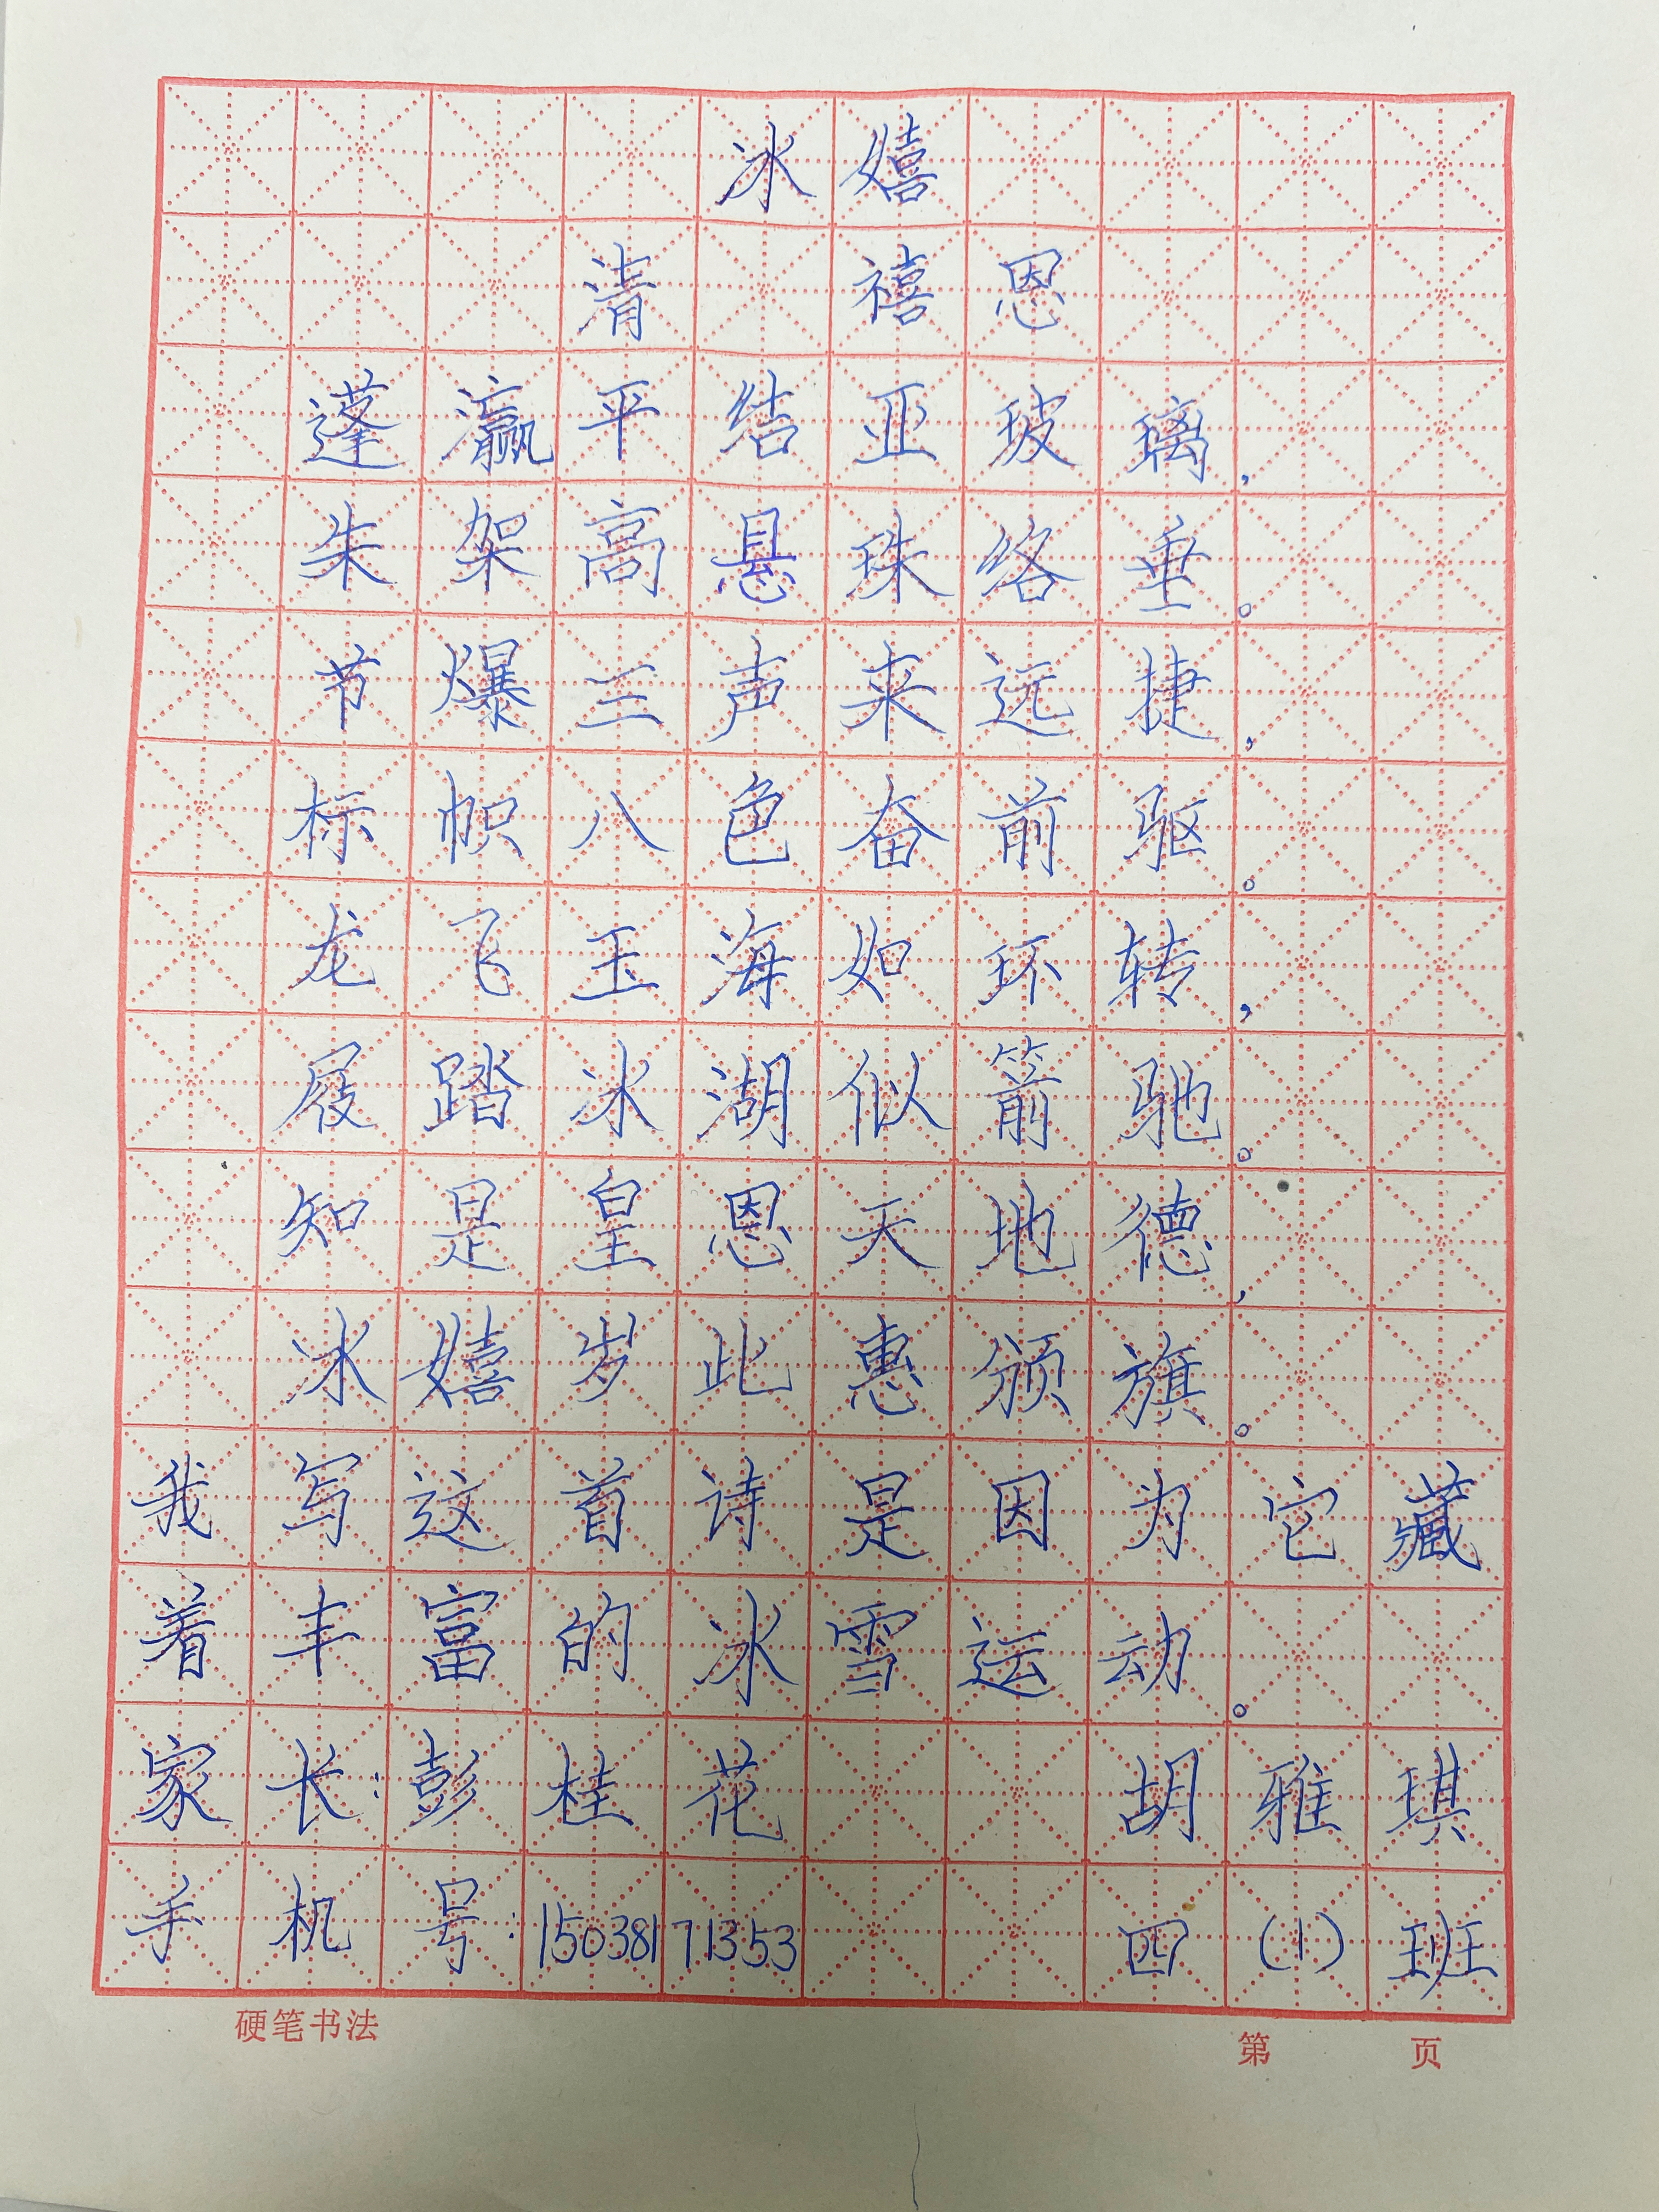 冰嬉
清 禧恩
蓬瀛平结亚玻璃,
朱架高悬珠络垂。
节爆三声来远捷,
标帜八色奋前驱。
龙飞玉海如环转,
屐踏冰湖似箭驰。
知是皇恩天地德,
冰嬉岁此惠颁旗。
我写这首诗是因为它藏
着丰富的冰雪运动。
家长:彭桂花 胡雅琪
手机号:15038171353 四(1)班
硬笔书法 第 页